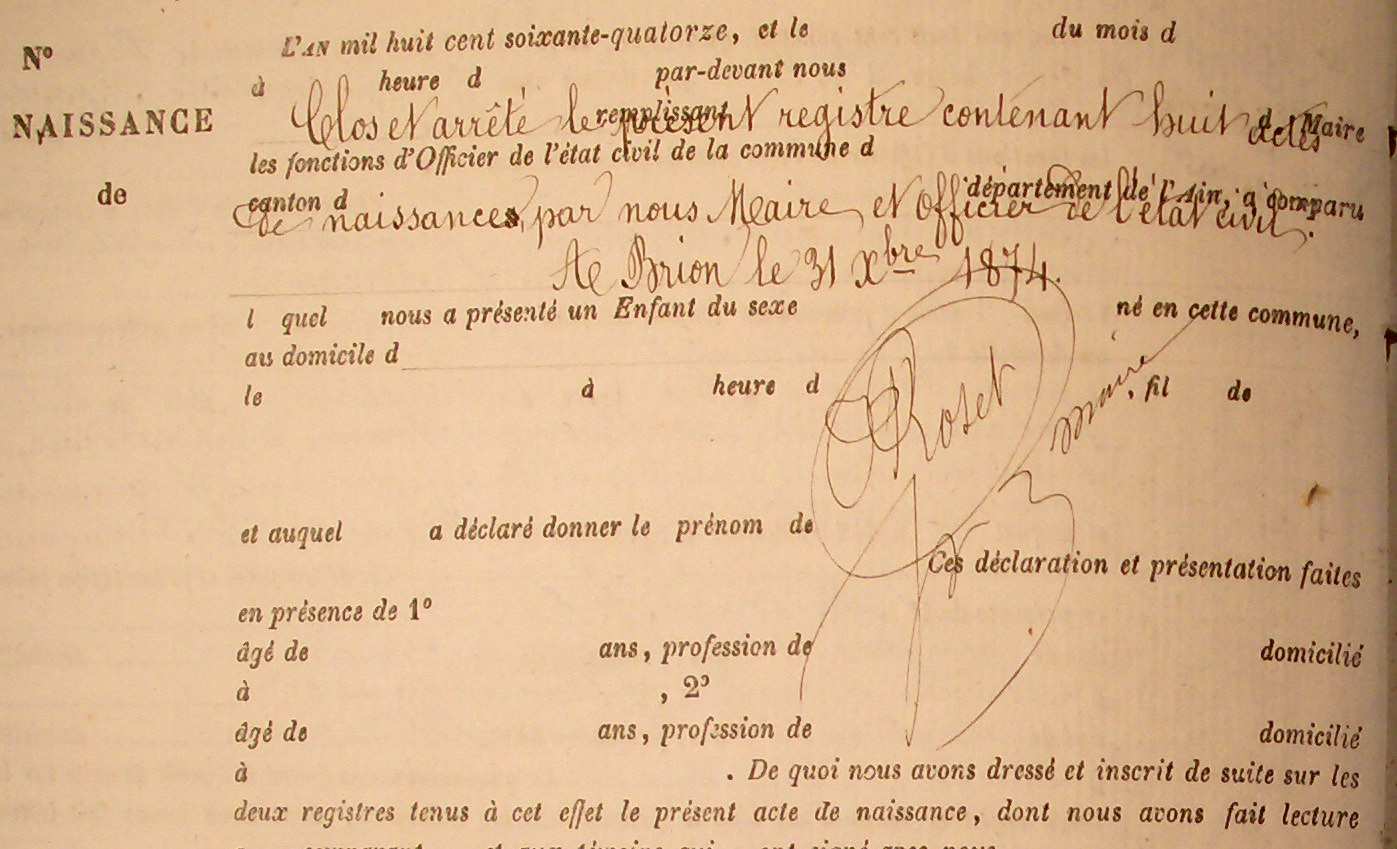 N° L'AN mil huit cent soixante-quatorze, et le du mois d
à heure d par-devant nous
remplissant d Maire
Clos et arrêté le présent registre contenant huit actes
NAISSANCE
les fonctions d'Officier de l'état civil de la commune d
de
canton d département de l'Ain, a comparu
de naissances, par nous Maire et Officier de l'état civil.
A Brion le 31 Xbre 1874.
l quel nous a présenté un Enfant du sexe né en cette commune,
au domicile d
le à heure d , fil de
Roset maire
et auquel a déclaré donner le prénom de
Ces déclaration et présentation faites
en présence de 1°
âgé de ans, profession de domicilié
à , 2°
âgé de ans, profession de domicilié
à . De quoi nous avons dressé et inscrit de suite sur les
deux registres tenus à cet effet le présent acte de naissance, dont nous avons fait lecture